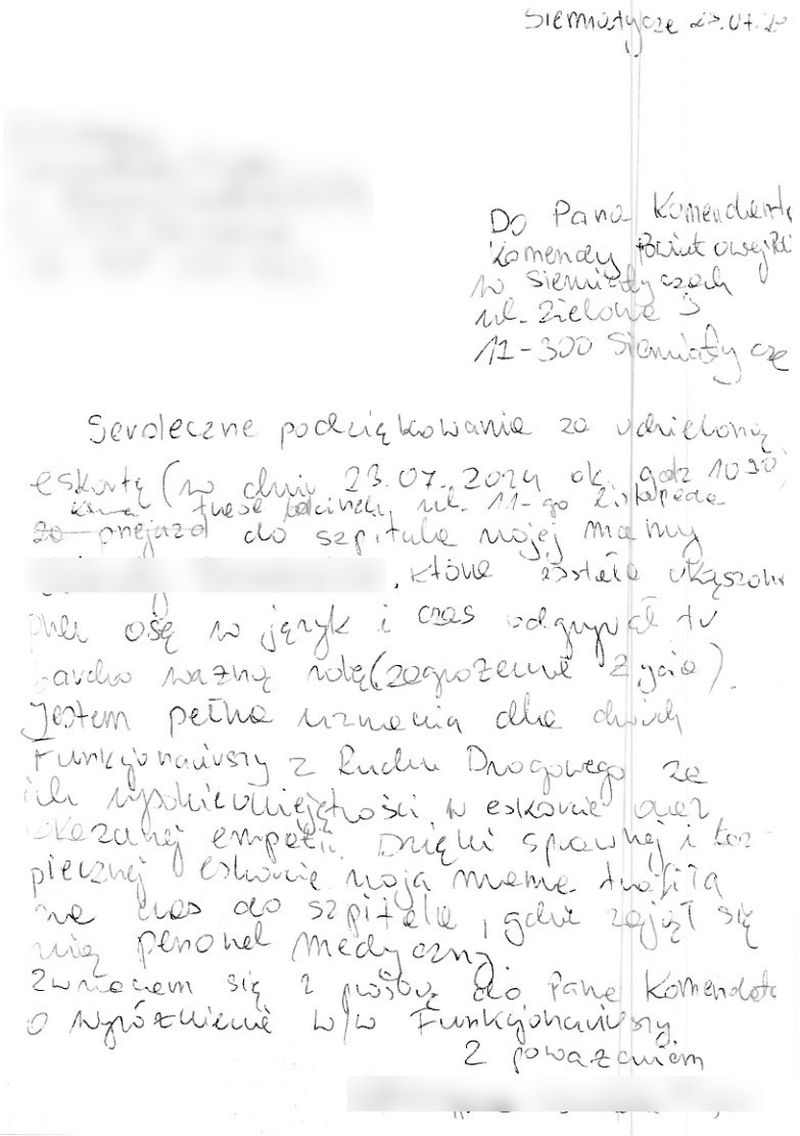 Siemiatycze 23.07.20
Do Pana Komendanta
Komendy Powiatowej Pol
w Siemiatyczach
ul. Zielona 3
17-300 Siemiatycze
Serdeczne podziękowania za udzieloną
eskortę (w dniu 23.07.2024 ok. godz 1030
trasa odcinek ul. 11-go Listopada
za przejazd do szpitala mojej mamy
, która została ukąszona
przez osę w język i czas odgrywał tu
bardzo ważną rolę (zagrożenie życia).
Jestem pełna uznania dla dwóch
Funkcjonariuszy z Ruchu Drogowego za
ich wysokie umiejętności w eskorcie oraz
okazanej empatii. Dzięki sprawnej i bez-
piecznej eskorcie moja mama trafiła
na czas do szpitala, gdzie zajął się
nią personel medyczny.
Zwracam się z prośbą do Pana Komendanta
o wyróżnienie w/w Funkcjonariuszy
Z poważaniem